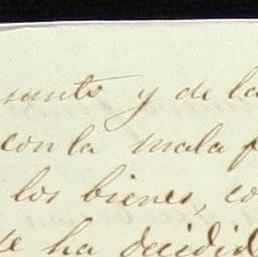 santo y de la
con la mala f
los bienes, co
se ha decidid